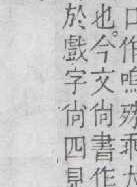 作嗚殊乖
也。今文尙書作
於戲字尙四見